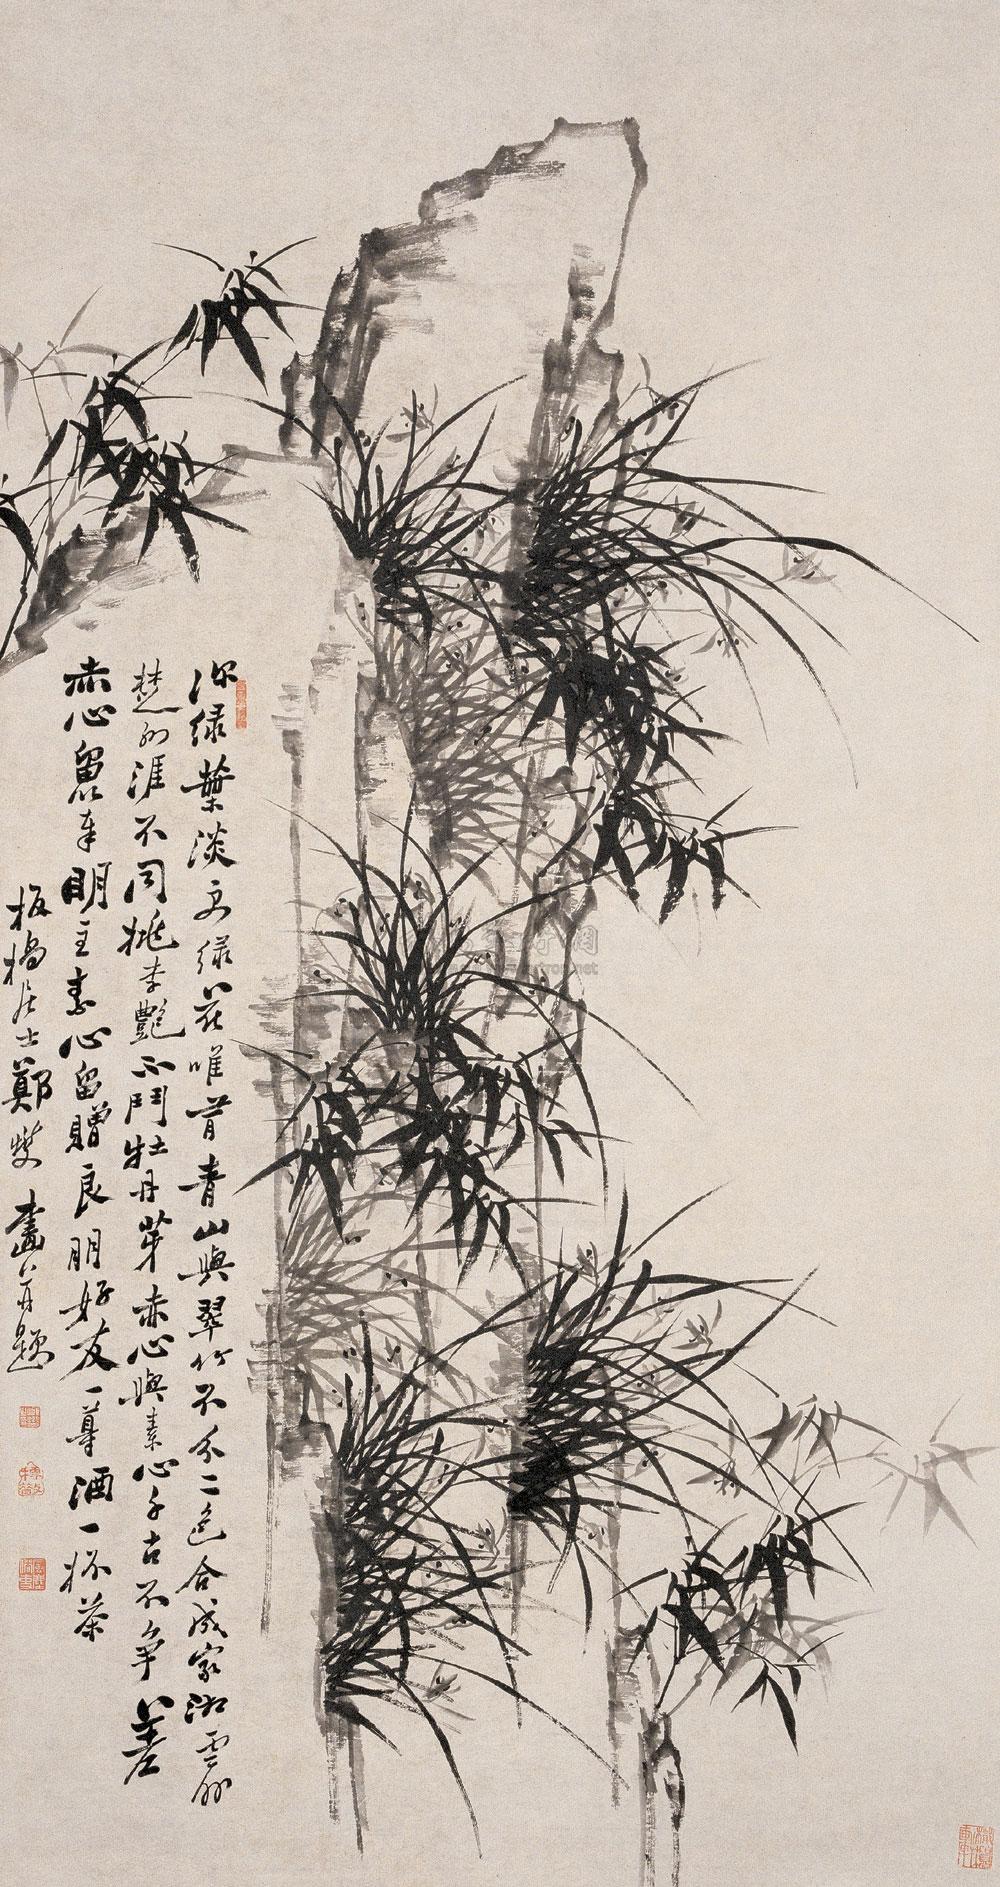 深绿葉淡更绿花唯首青山與翠竹不分二色合成家湘雲外
楚外涯不同桃李艷不鬥牡丹芽赤心與素心千古不争差
赤心留奉明主素心留贈良朋好友一尊酒一杯茶
板橋居士鄭燮畫并題